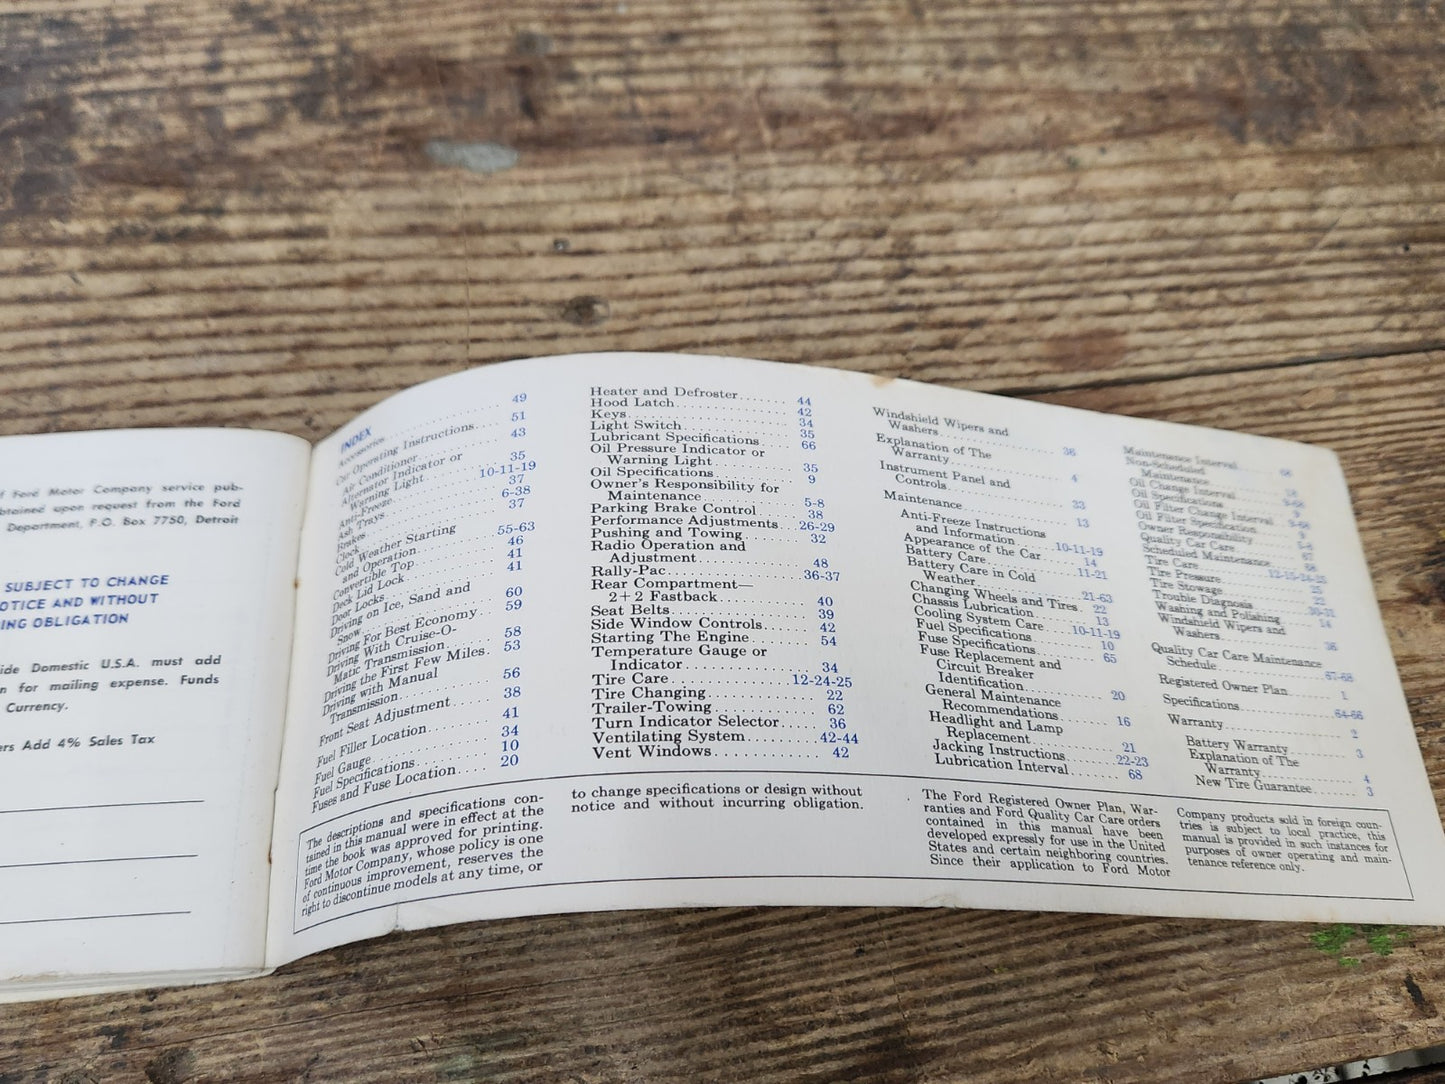 f Ford Motor Company service pub-
btained upon request from the Ford
Department, P.O. Box 7750, Detroit
SUBJECT TO CHANGE
OTICE AND WITHOUT
ING OBLIGATION
ide Domestic U.S.A. must add
n for mailing expense. Funds
Currency.
ers Add 4% Sales Tax
INDEX
Accessories 49
Air Conditioner
Alternator Indicator or
Warning Light
Anti-Freeze 10-11-19
Ash Trays 37
Brakes 6-38
Clock 37
Cold Weather Starting
and Operation 55-63
Convertible Top 46
Deck Lid Lock 41
Door Locks 41
Driving on Ice, Sand and
Snow 60
Driving For Best Economy 59
Driving With Cruise-O-
Matic Transmission 58
Driving the First Few Miles 53
Driving with Manual
Transmission 56
Front Seat Adjustment 38
Fuel Filler Location 41
Fuel Gauge 34
Fuel Specifications 10
Fuses and Fuse Location 20
Heater and Defroster 44
Hood Latch 42
Keys 34
Light Switch 35
Lubricant Specifications 66
Oil Pressure Indicator or
Warning Light 35
Oil Specifications 9
Owner's Responsibility for
Maintenance 5-8
Parking Brake Control 38
Performance Adjustments 26-29
Pushing and Towing 32
Radio Operation and
Adjustment 48
Rally-Pac 36-37
Rear Compartment—
2+2 Fastback 40
Seat Belts 39
Side Window Controls 42
Starting The Engine 54
Temperature Gauge or
Indicator 34
Tire Care 12-24-25
Tire Changing 22
Trailer-Towing 62
Turn Indicator Selector 36
Ventilating System 42-44
Vent Windows 42
Windshield Wipers and
Washers 36
Explanation of The
Warranty 4
Instrument Panel and
Controls 33
Maintenance 13
Anti-Freeze Instructions
and Information 10-11-19
Appearance of the Car 14
Battery Care 11-21
Battery Care in Cold
Weather 21-63
Changing Wheels and Tires 22
Chassis Lubrication 13
Cooling System Care 10-11-19
Fuel Specifications 10
Fuse Specifications 65
Fuse Replacement and
Circuit Breaker
Identification 20
General Maintenance
Recommendations 16
Headlight and Lamp
Replacement 21
Jacking Instructions 22-23
Lubrication Interval 68
Maintenance Interval 68
Non-Scheduled
Maintenance
Oil Change Interval
Oil Specifications 9
Oil Filter Change Interval
Oil Filter Specification 9
Owner Responsibility
Quality Car Care 67
Scheduled Maintenance 68
Tire Care 12-15-24-25
Tire Pressure 25
Tire Stowage
Trouble Diagnosis 30-31
Washing and Polishing 14
Windshield Wipers and
Washers 36
Quality Car Care Maintenance
Schedule 67-68
Registered Owner Plan 1
Specifications 64-66
Warranty 2
Battery Warranty 3
Explanation of The
Warranty 4
New Tire Guarantee 3
The descriptions and specifications con-
tained in this manual were in effect at the
time the book was approved for printing.
Ford Motor Company, whose policy is one
of continuous improvement, reserves the
right to discontinue models at any time, or
to change specifications or design without
notice and without incurring obligation.
The Ford Registered Owner Plan, War-
ranties and Ford Quality Car Care orders
contained in this manual have been
developed expressly for use in the United
States and certain neighboring countries.
Since their application to Ford Motor
Company products sold in foreign coun-
tries is subject to local practice, this
manual is provided in such instances for
purposes of owner operating and main-
tenance reference only.